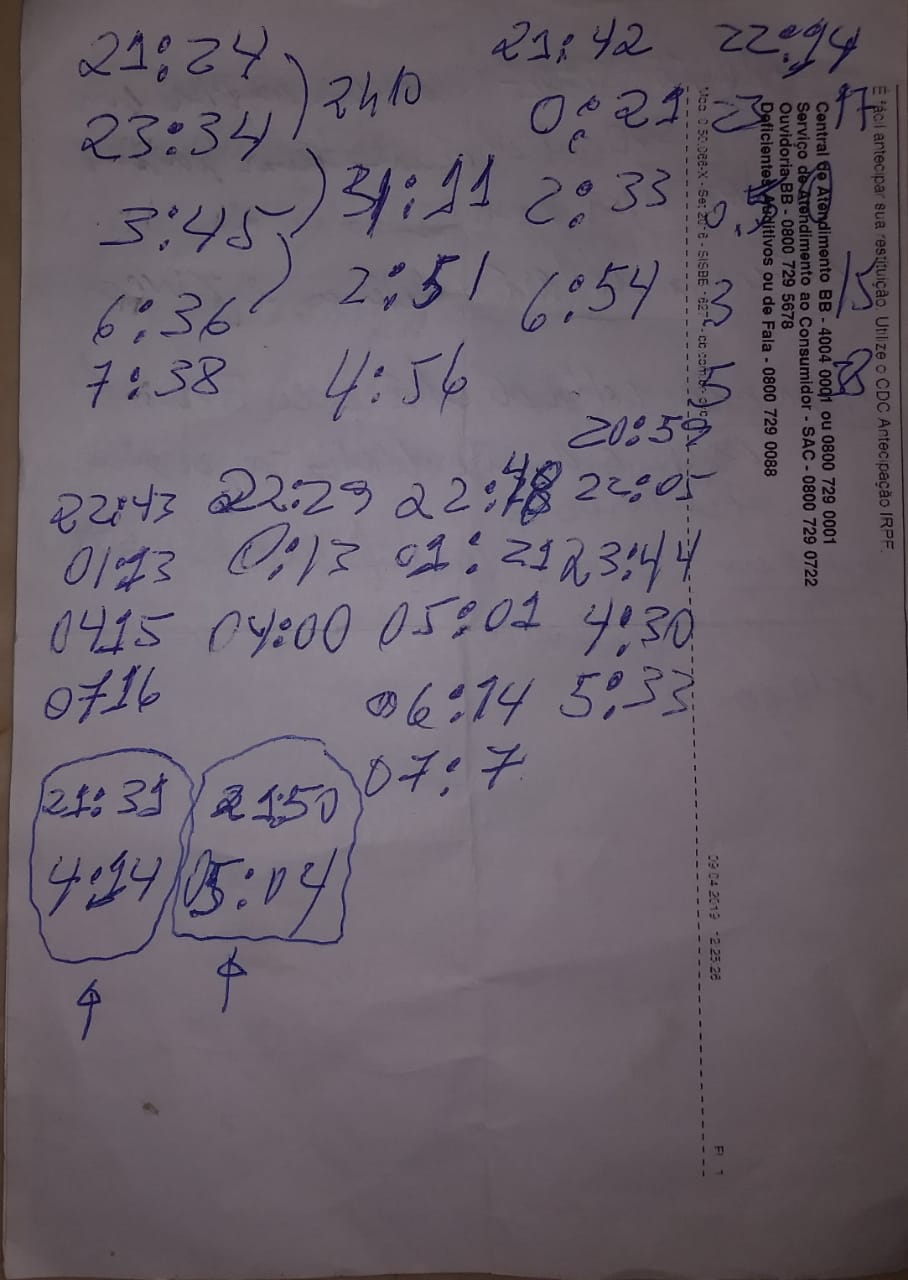 21:24
23:34
3:45
6:36
7:38
2h10
31:11
2:51
4:56
21:42
0:21
2:33
6:54
20:59
22:43 22:29 22:48 22:05
01:13 0:13 01:21 23:44
0415 04:00 05:01 4:30
0716 06:14 5:33
07:7
21:31 21:50
4:14 05:04
É fácil antecipar sua restituição. Utilize o CDC Antecipação IRPF.
Central de Atendimento BB - 4004 0001 ou 0800 729 0001
Serviço de Atendimento ao Consumidor - SAC - 0800 729 0722
Ouvidoria BB - 0800 729 5678
Deficientes Auditivos ou de Fala - 0800 729 0088
09.04.2019 12:25:26